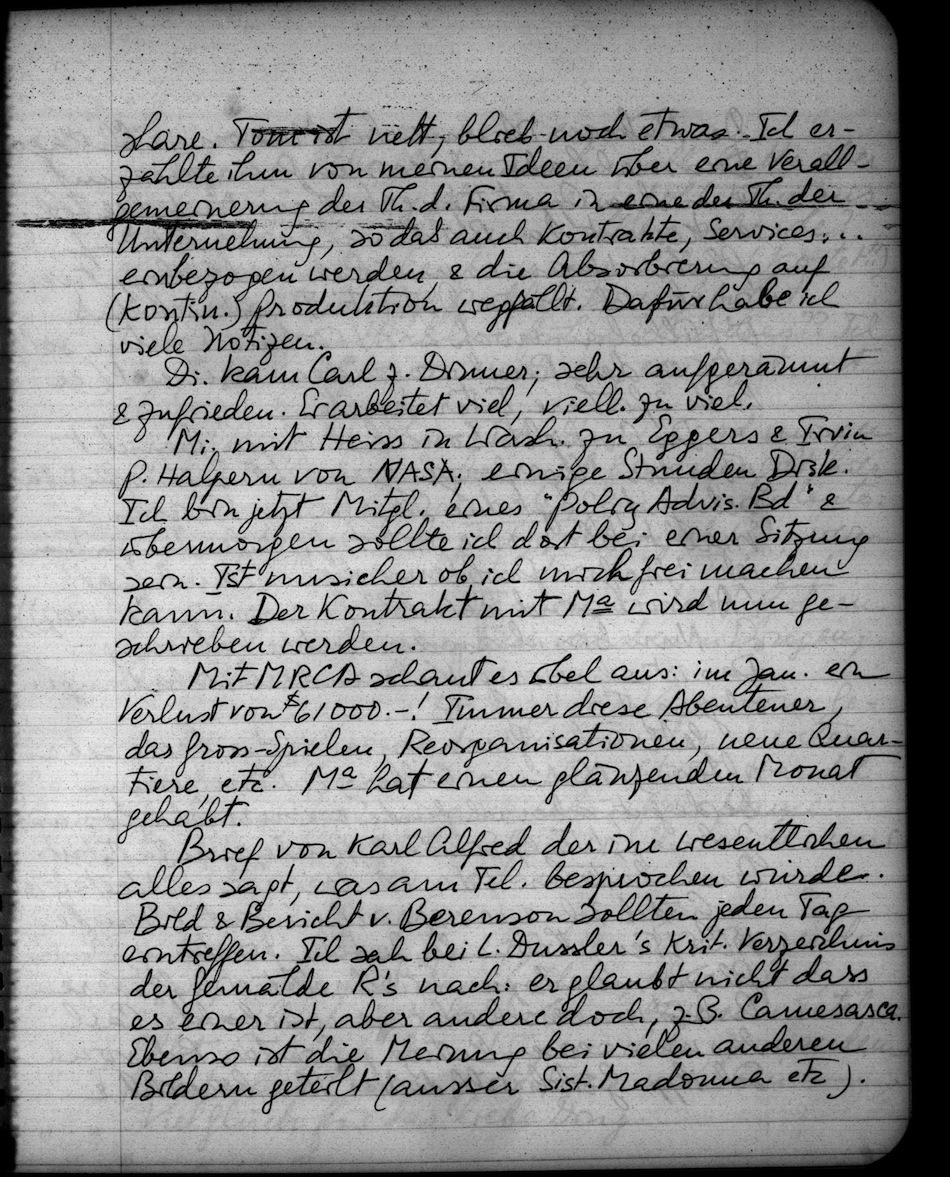 Hare. Tom ist nett, blieb noch etwas. Ich er-
zählte ihm von meinen Ideen über eine Verall-
gemeinerung der Th. d. Firma in eine der Th. der
Unternehmung, so daß auch Kontrakte, Services,...
einbezogen werden, & die Absorbierung auf
(kontin.) Produktion wegfällt. Dafür habe ich
viele Notizen.
Di. kam Carl z. Dinner; sehr aufgeräumt
& zufrieden. Er arbeitet viel, viell. zu viel.
Mi. mit Heiss in Wash. zu Eggers & Irvin
P. Halpern von NASA; einige Stunden Disk.
Ich bin jetzt Mitgl. eines "Policy Advis. Bd" &
übermorgen sollte ich dort bei einer Sitzung
sein. Ist unsicher ob ich mich frei machen
kann. Der Kontrakt mit Ma wird nun ge-
schrieben werden.
Mit MRCA schaut es übel aus: im Jan. ein
Verlust von $61000.-! Immer diese Abenteuer,
das Gross-Spielen, Reorganisationen, neue Quar-
tiere, etc. Ma hat einen glänzenden Monat
gehabt.
Brief von Karl Alfred der im wesentlichen
alles sagt, was am Tel. besprochen wurde.
Bild & Bericht v. Berenson sollten jeden Tag
eintreffen. Ich sah bei L. Dussler's Krit. Verzeichnis
der Gemälde R's nach: er glaubt nicht dass
es einer ist, aber andere doch, z.B. Camesasca.
Ebenso ist die Meinung bei vielen anderen
Bildern geteilt (ausser Sist. Madonna etc).